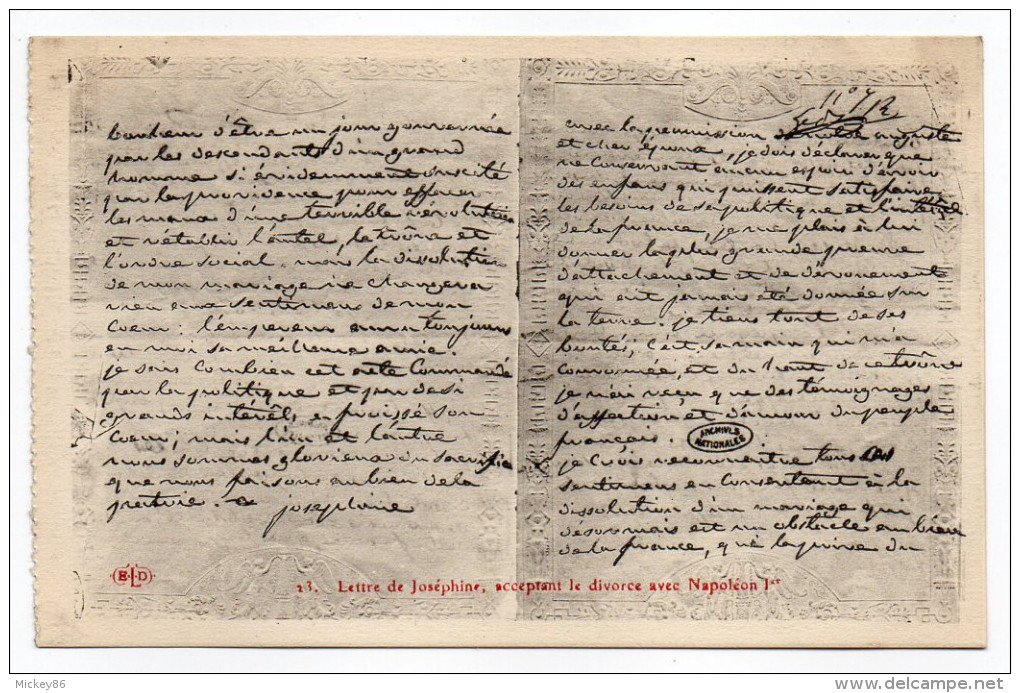 avec la permission de notre auguste
et cher époux, je dois déclarer que
ne conservant aucun espoir d'avoir
des enfans qui puissent satisfaire
les besoins de sa politique et l'intérêt
de la france, je me plais à lui
donner la plus grande preuve
d'attachement et de dévouement
qui ait jamais été donnée sur
la terre. je tiens tout de ses
bontés; c'est sa main qui m'a
couronnée, et du haut de ce trône
je n'ai reçu que des témoignages
d'affection et d'amour du peuple
français.
ARCHIVES
NATIONALES
je crois reconnaitre tous ces
sentimens en consentant à la
dissolution d'un mariage qui
désormais est un obstacle au bien
de la france, qui la prive du
bonheur d'être un jour gouvernée
par les descendants d'un grand
homme si évidemment suscité
par la providence pour effacer
les maux d'une terrible révolution
et rétablir l'autel, le trône et
l'ordre social. mais la dissolution
de mon mariage ne changera
rien aux sentimens de mon
coeur: l'empereur aura toujours
en moi sa meilleure amie.
je sais combien cet acte commandé
par la politique et par de si
grands intérêts a froissé son
coeur; mais l'un et l'autre
nous sommes glorieux du sacrifice
que nous faisons au bien de la
patrie.
joséphine
E.L.D
23. Lettre de Joséphine, acceptant le divorce avec Napoléon Ier
Mickey86
delcampe.net